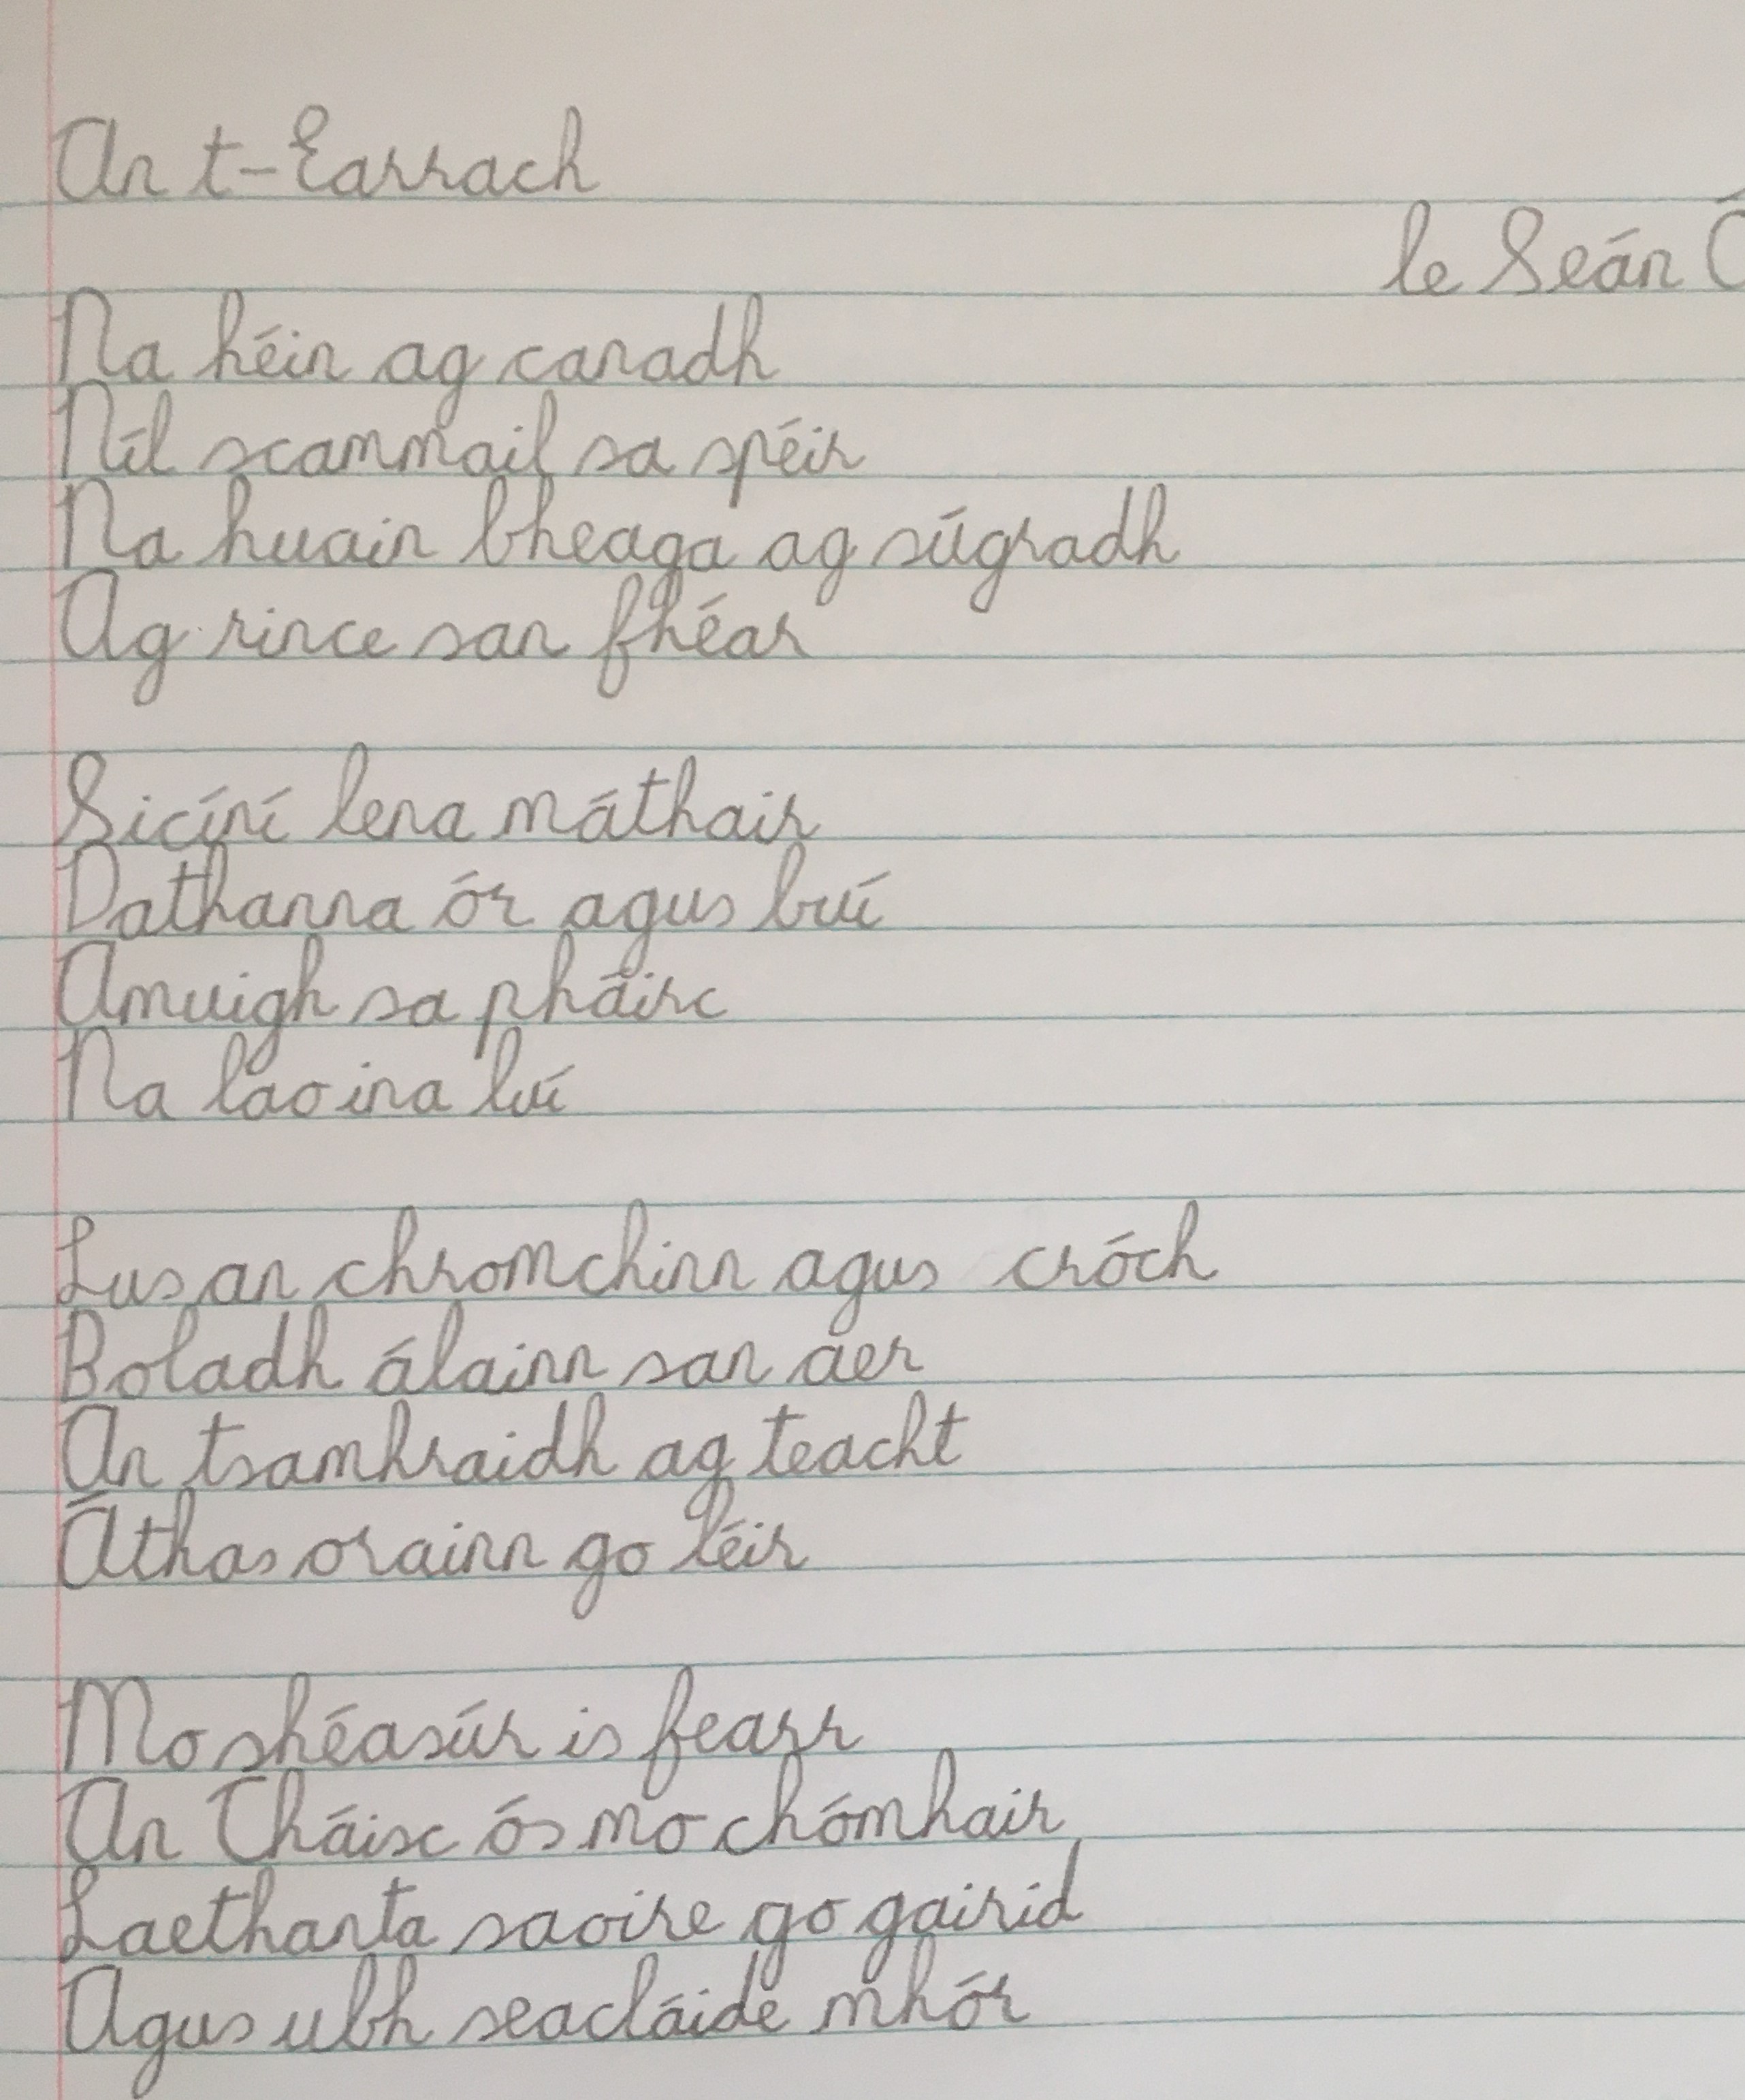 An t-Earrach
le Seán Ó
Na héin ag canadh
Níl scammail sa spéir
Na huain bheaga ag súgradh
Ag rince san fhéar
Sicíní lena máthair
Dathanna ór agus buí
Amuigh sa pháirc
Na lao ina luí
Lus an chromchinn agus cróch
Boladh álainn san aer
An tsamhraidh ag teacht
Áthas orainn go léir
Mo shéasúr is fearr
An Cháisc ós mo chómhair
Laethanta saoire go gairid
Agus ubh seacláide mhór